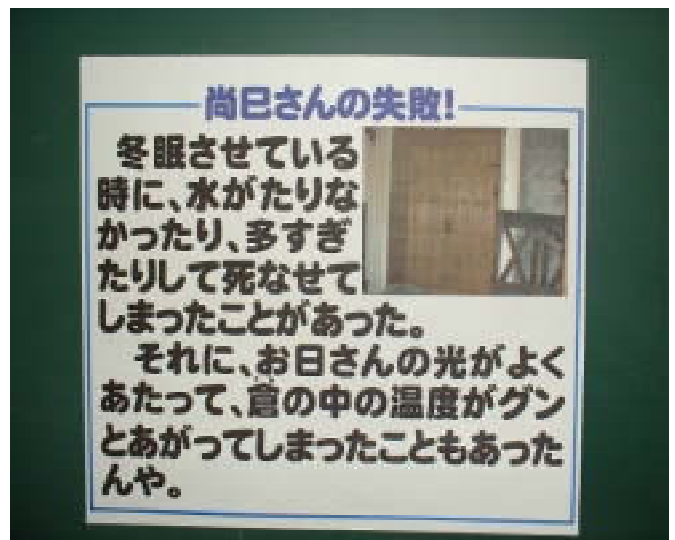 尚巳さんの失敗!
冬眠させている
時に、水がたりな
かったり、多すぎ
たりして死なせて
しまったことがあった。
それに、お日さんの光がよく
あたって、倉の中の温度がグン
とあがってしまったこともあった
んや。